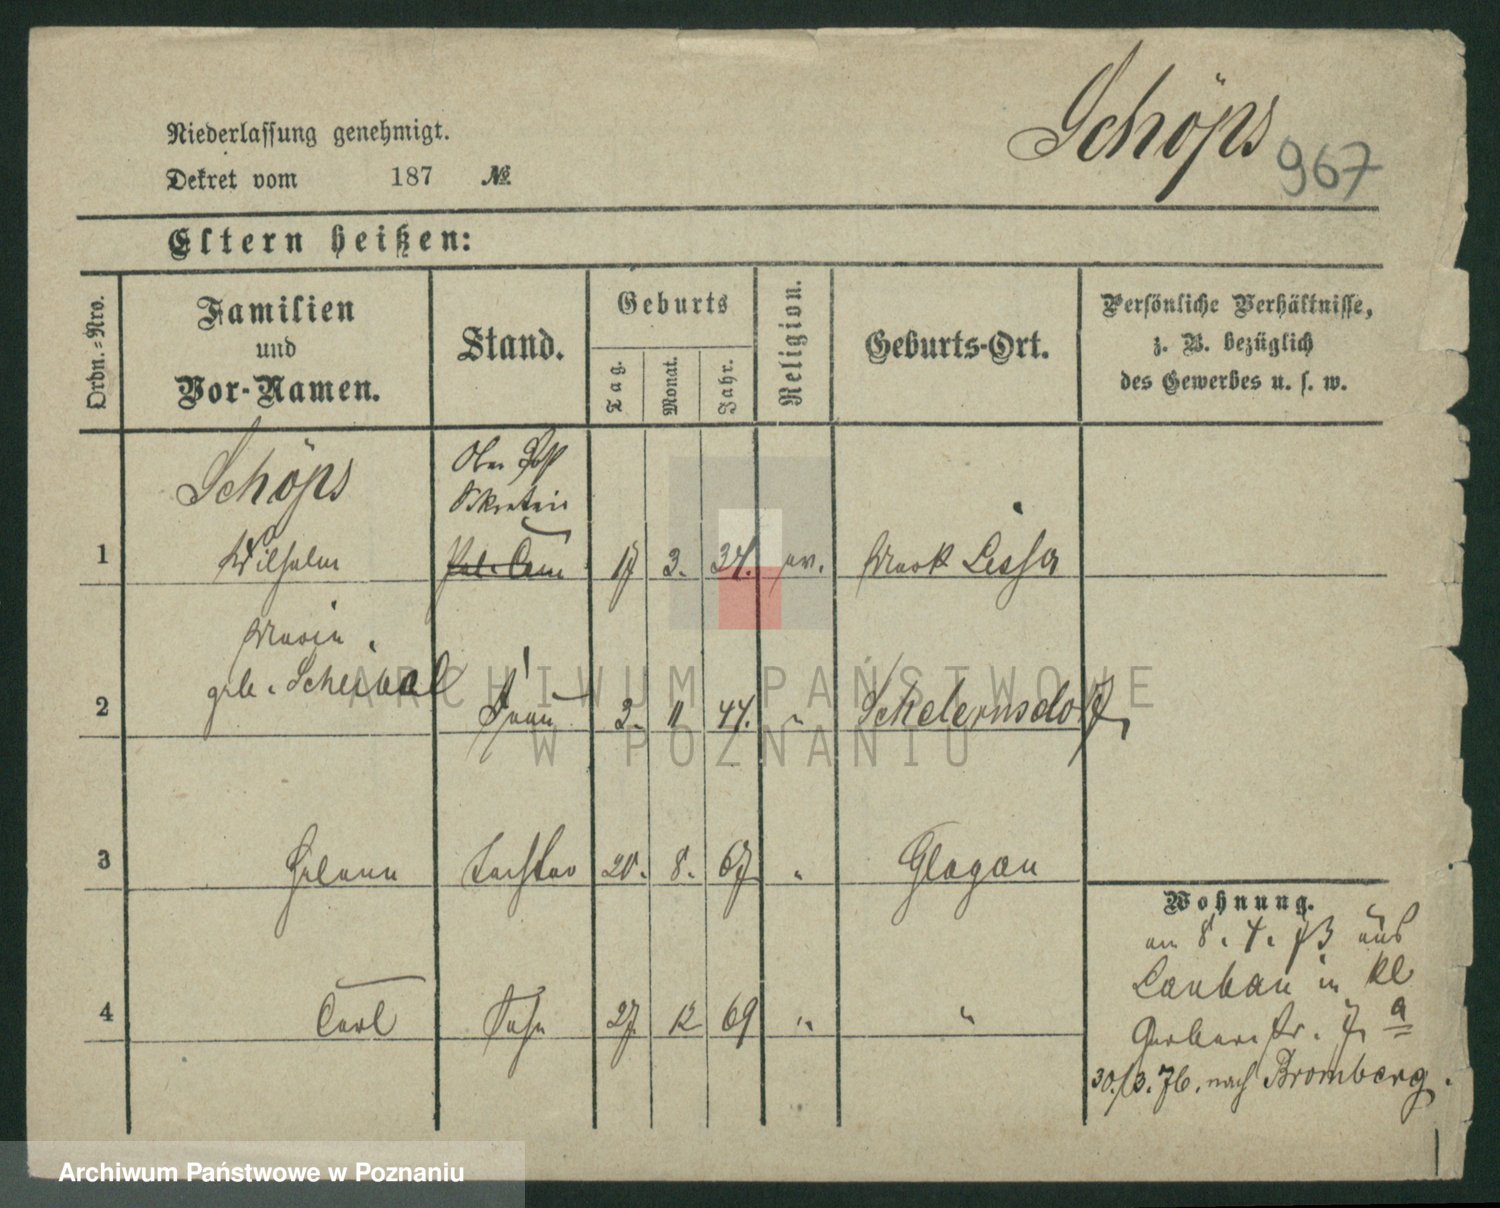 Schöps
967
Niederlassung genehmigt.
Dekret vom 187 №
Eltern heißen:
Ordn.-Nro.
Familien
und
Vor-Namen.
Stand.
Geburts
Tag.
Monat.
Jahr.
Religion.
Geburts-Ort.
Persönliche Verhältnisse,
z. B. bezüglich
des Gewerbes u. s. w.
Schöps
Ober Post
Sekretair
1 Wilhelm 17 3. 34. ev. Lissa
Marie
geb. Scheibal
2 Frau 2. 11 44. "
3 Helene Tochter 20. 8. 67 " Glogau
4 Carl Sohn 27. 12 69 " "
Wohnung.
am 8. 4. 73 aus
Lauban in Kl
Gerberstr. 7 a
30./3. 76. nach Bromberg.
ARCHIWUM PAŃSTWOWE
W POZNANIU
Archiwum Państwowe w Poznaniu